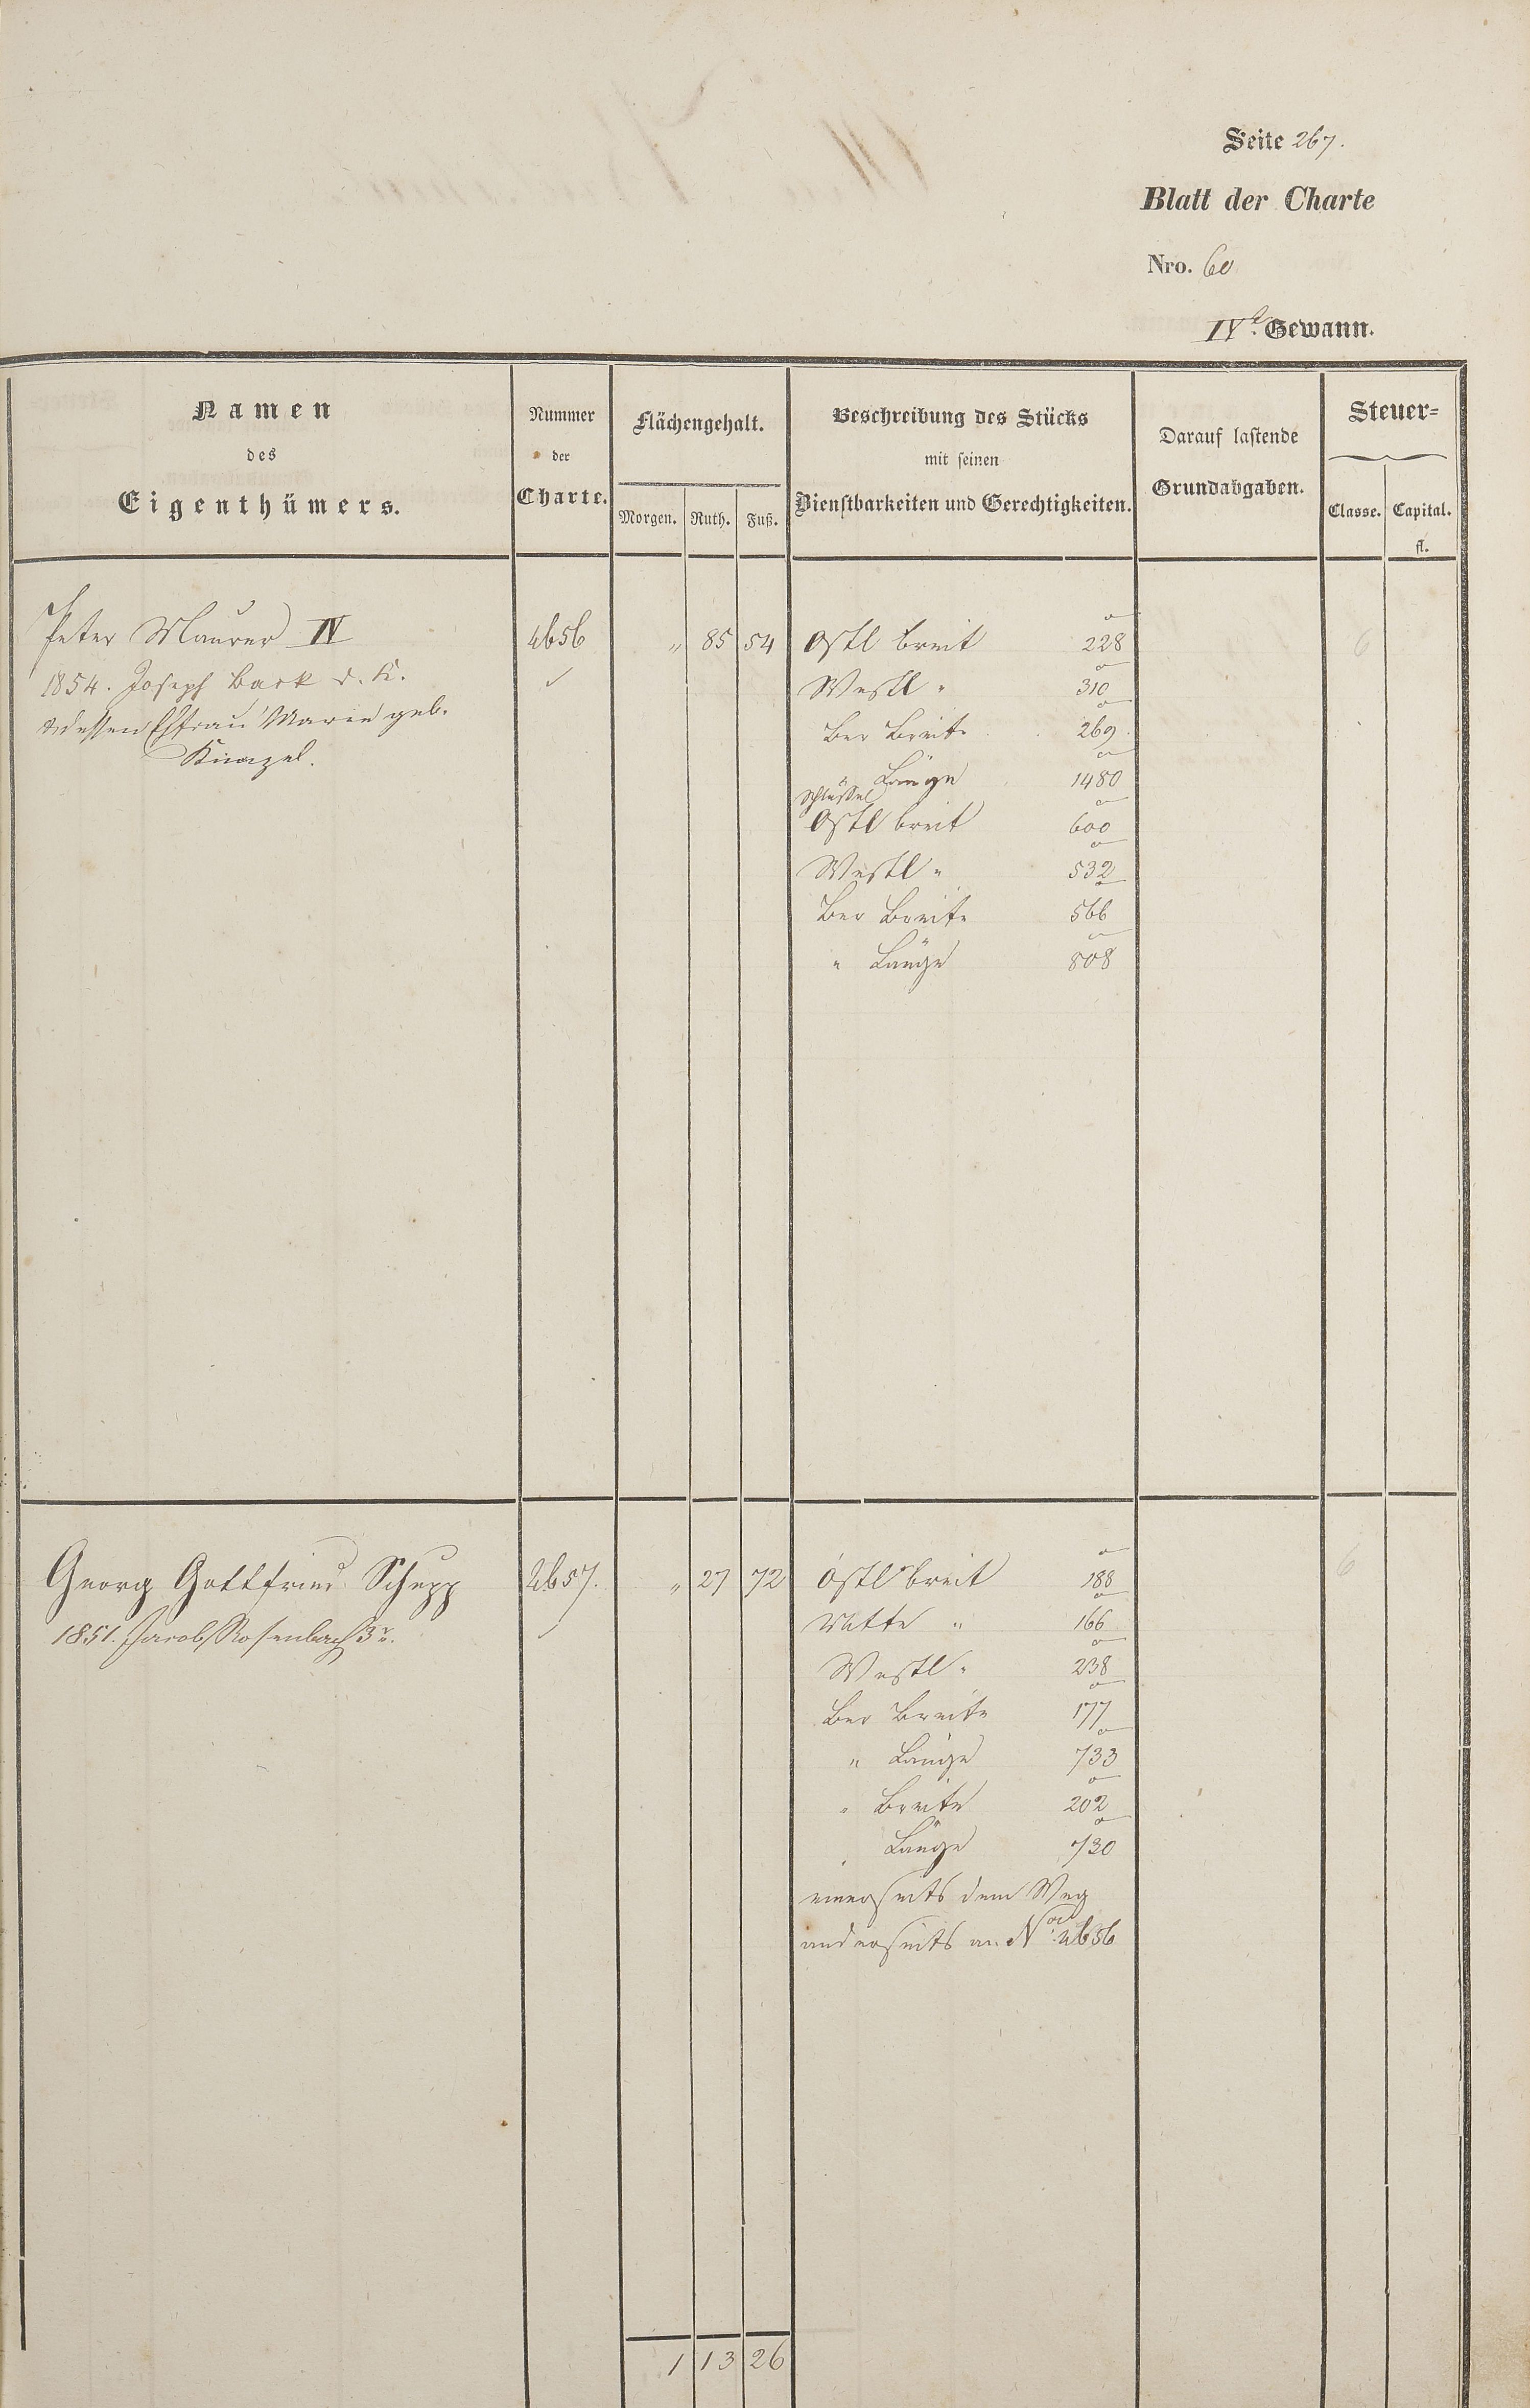 Seite 267.
Blatt der Charte
Nro. 60
IVte. Gewann.
Namen
des
Eigenthümers.
Nummer
der
Charte.
Flächengehalt.
Morgen. Ruth. Fuß.
Beschreibung des Stücks
mit seinen
Dienstbarkeiten und Gerechtigkeiten.
Darauf lastende
Grundabgaben.
Steuer-
Classe. Capital.
fl.
Peter Maurer IV 4656 " 85 54 Östl breit 228 6
1854. Joseph Bark d. K. Westl " 310
u dessen Ehfrau Marie geb. Ber Breite 269.
" Länge 1480
Schlüssel
Östl breit 600
Westl " 532
Ber Breite 566
" Länge 808
Georg Gottfried Schupp 4657. " 27 72 Östl breit 188 6
1851. Jacob Rosenbach 3r. Mitte " 166
Westl " 238
Ber Breite 177
" Länge 733
" Breite 202
" Länge 730
einerseits dem Weg
anderseits an Nro. 4656
1 13 26